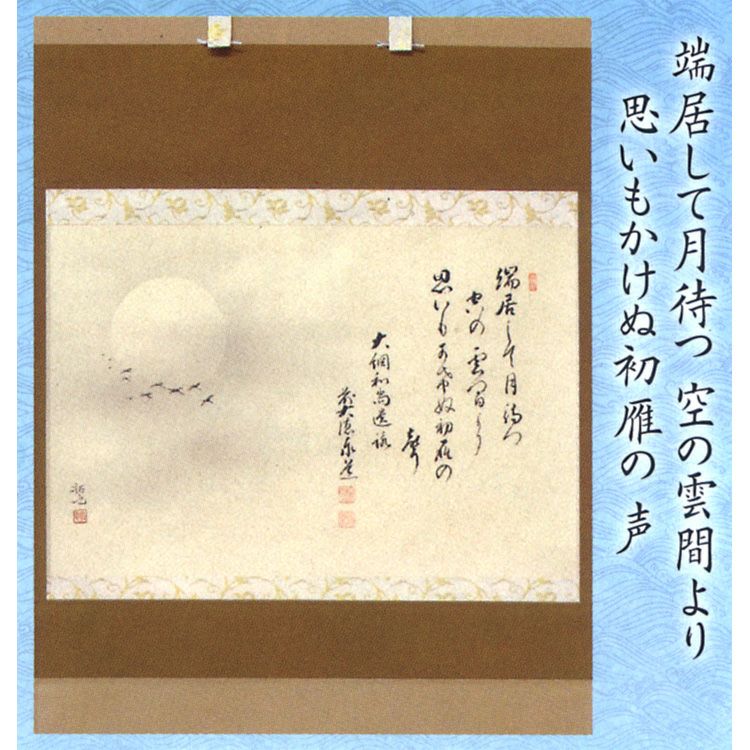 端居して月待つ 空の雲間より
思いもかけぬ初雁の 声
端居して月待つ
空の雲間より
思いもかけぬ初雁の
聲
大綱和尚遺詠